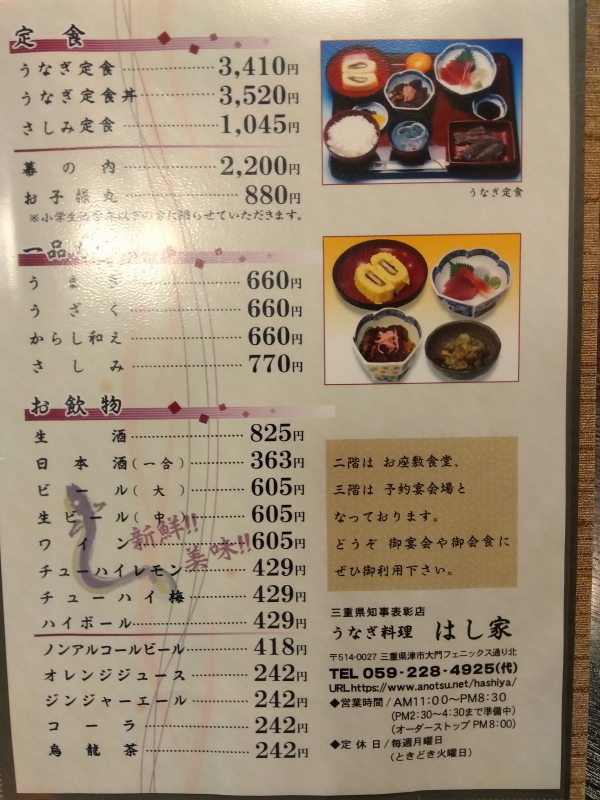 定食
うなぎ定食 3,410円
うなぎ定食丼 3,520円
さしみ定食 1,045円
幕の内 2,200円
お子様丸 880円
※小学生低学年以下の方に限らせていただきます。
一品
うまき 660円
うざく 660円
からし和え 660円
さしみ 770円
お飲物
生酒 825円
日本酒(一合) 363円
ビール(大) 605円
生ビール(中) 605円
ワイン 605円
チューハイレモン 429円
チューハイ梅 429円
ハイボール 429円
新鮮!!
美味!!
ノンアルコールビール 418円
オレンジジュース 242円
ジンジャーエール 242円
コーラ 242円
烏龍茶 242円
うなぎ定食
二階は お座敷食堂、
三階は 予約宴会場と
なっております。
どうぞ 御宴会や御会食に
ぜひ御利用下さい。
三重県知事表彰店
うなぎ料理 はし家
〒514-0027 三重県津市大門フェニックス通り北
TEL 059-228-4925(代)
URL https://www.anotsu.net/hashiya/
◆営業時間/AM11:00～PM8:30
(PM2:30～4:30まで準備中)
(オーダーストップ PM8:00)
◆定休日/毎週月曜日
(ときどき火曜日)